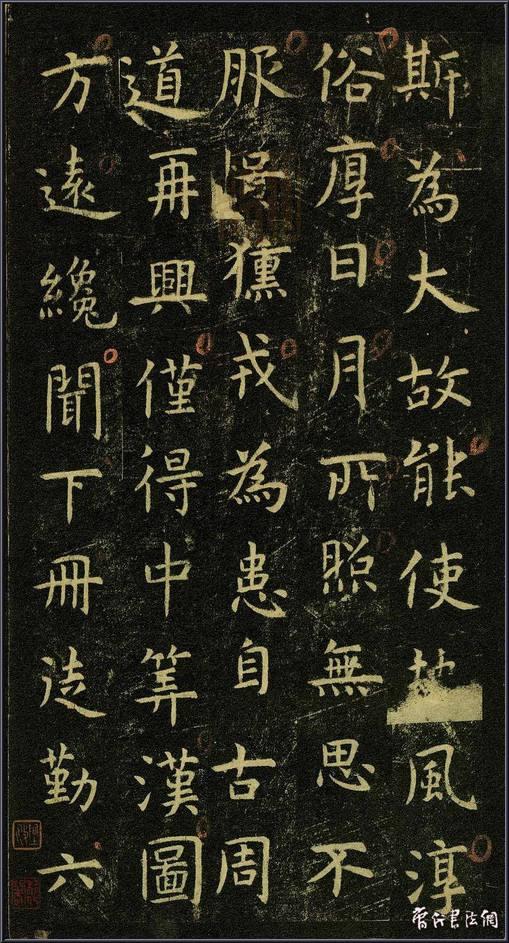 斯為大故能使地風淳
俗厚日月所照無思不
服獯戎為患自古周
道再興僅得中筭漢圖
方遠纔聞下冊徒勤六
書法網